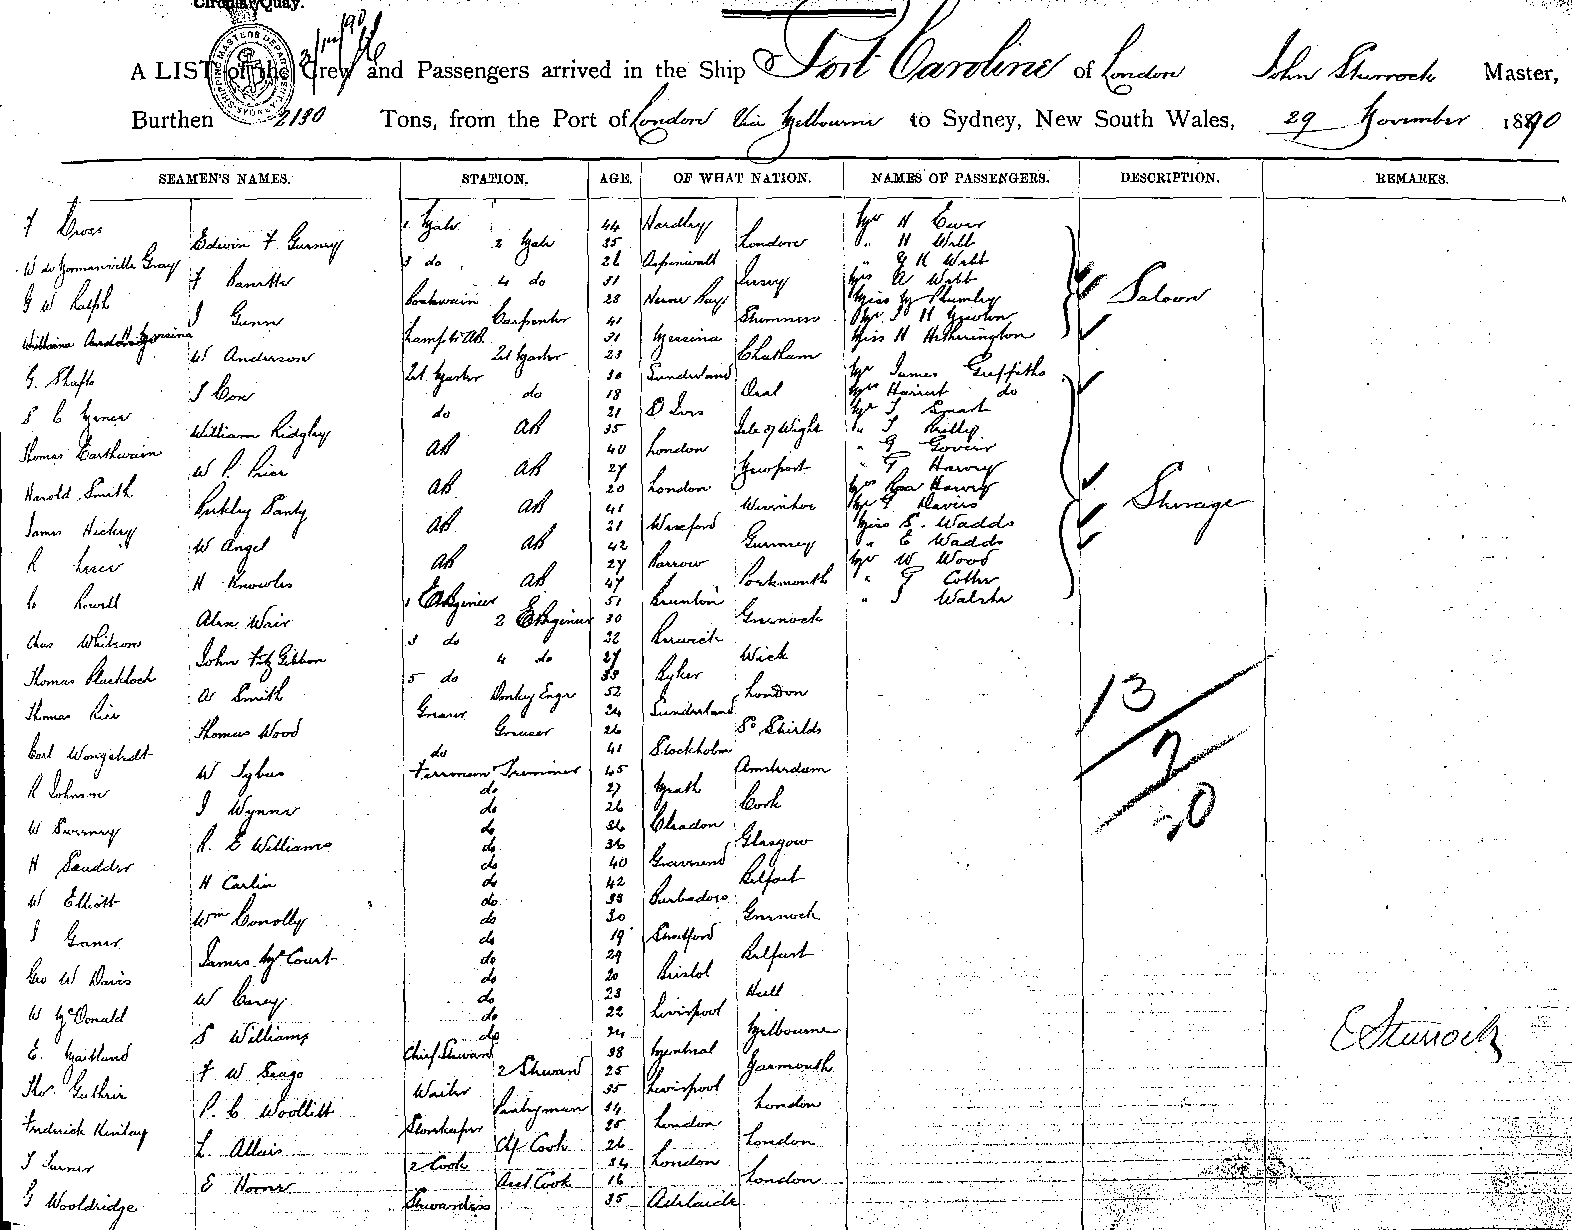 Circular Quay.
A LIST of the Crew and Passengers arrived in the Ship Port Caroline of London John Sturrock Master,
Burthen 2130 Tons, from the Port of London Via Melbourne to Sydney, New South Wales, 29 November 1890
SEAMEN'S NAMES. STATION. AGE. OF WHAT NATION. NAMES OF PASSENGERS. DESCRIPTION. REMARKS.
F Cross 1 Mate 44 Hardley Mr H Ewer
Edwin F Gurney 2 Mate 35 London " H Webb
W de Normanville Gray 3 do 26 Aspinwall " G H Webb
F 4 do 31 Jersey Mrs A Webb
G W Ralph Boatswain 28 Herne Bay Miss M Plumley Saloon
J Gunn Carpenter 41 Sheerness Mr J H Newton
Lamps & AB 31 Messina Miss H Hetherington
W Anderson 2d Master 23 Chatham
G. Shafto 2d Master 30 Sunderland Mr James Griffiths
J Cox do 18 Deal Mrs Harriet do
S C do 21 Mr T Smart
William Ridgley AB 35 Isle of Wight " J Reilly
Thomas AB 40 London " G
W P. Price AB 27 Newport " G Harvey
Harold Smith AB 20 London Mrs Rosa Harvey
AB 41 Wivenhoe Mr T Davies Steerage
James Hickey AB 21 Wexford Miss E. Wadds
W Angel AB 42 Guernsey " E Wadds
R AB 27 Barrow Mr W Wood
H Knowles AB 47 Portsmouth " G
C Powell 1 Engineer 51 " J Walsh
Alex. Weir 2 Engineer 30 Greenock
Chas Whitson 3 do 22 Berwick
John FitzGibbon 4 do 27 Wick
Thomas 5 do 33 Byker
A Smith Donkey Engr 52 London
Thomas Rice Greaser 24 Sunderland
Thomas Wood Greaser 26 So Shields
Carl do 41 Stockholm
W Fireman & Trimmer 45 Amsterdam
R Johnson do 27 Meath
J Wynne do 26 Cork
W Sweeney do 36 Cleadon
R. E Williams do 36 Glasgow
H do 40 Gravesend
H Carlin do 42 Belfast
W Elliott do 33 Barbadoes
Wm Conolly do 30 Greenock
J do 19 Stratford
James McCourt do 29 Belfast
Geo W Davis do 20 Bristol
W Carey do 23 Hull
W McDonald do 22 Liverpool
S Williams do 24 Melbourne
E. Maitland Chief Steward 38 Montreal
F W Seago 2 Steward 25 Yarmouth
Thos. Guthrie Waiter 35 Liverpool
P. C Woollitt Pantryman 34 London
Frederick Storekeeper 25 London
L. Allais Chf Cook 26 London
J Turner 2 Cook 34 London
E Horne Asst Cook 16 London
G Wooldridge Stewardess 35 Adelaide
13
7
20
E Sturrock